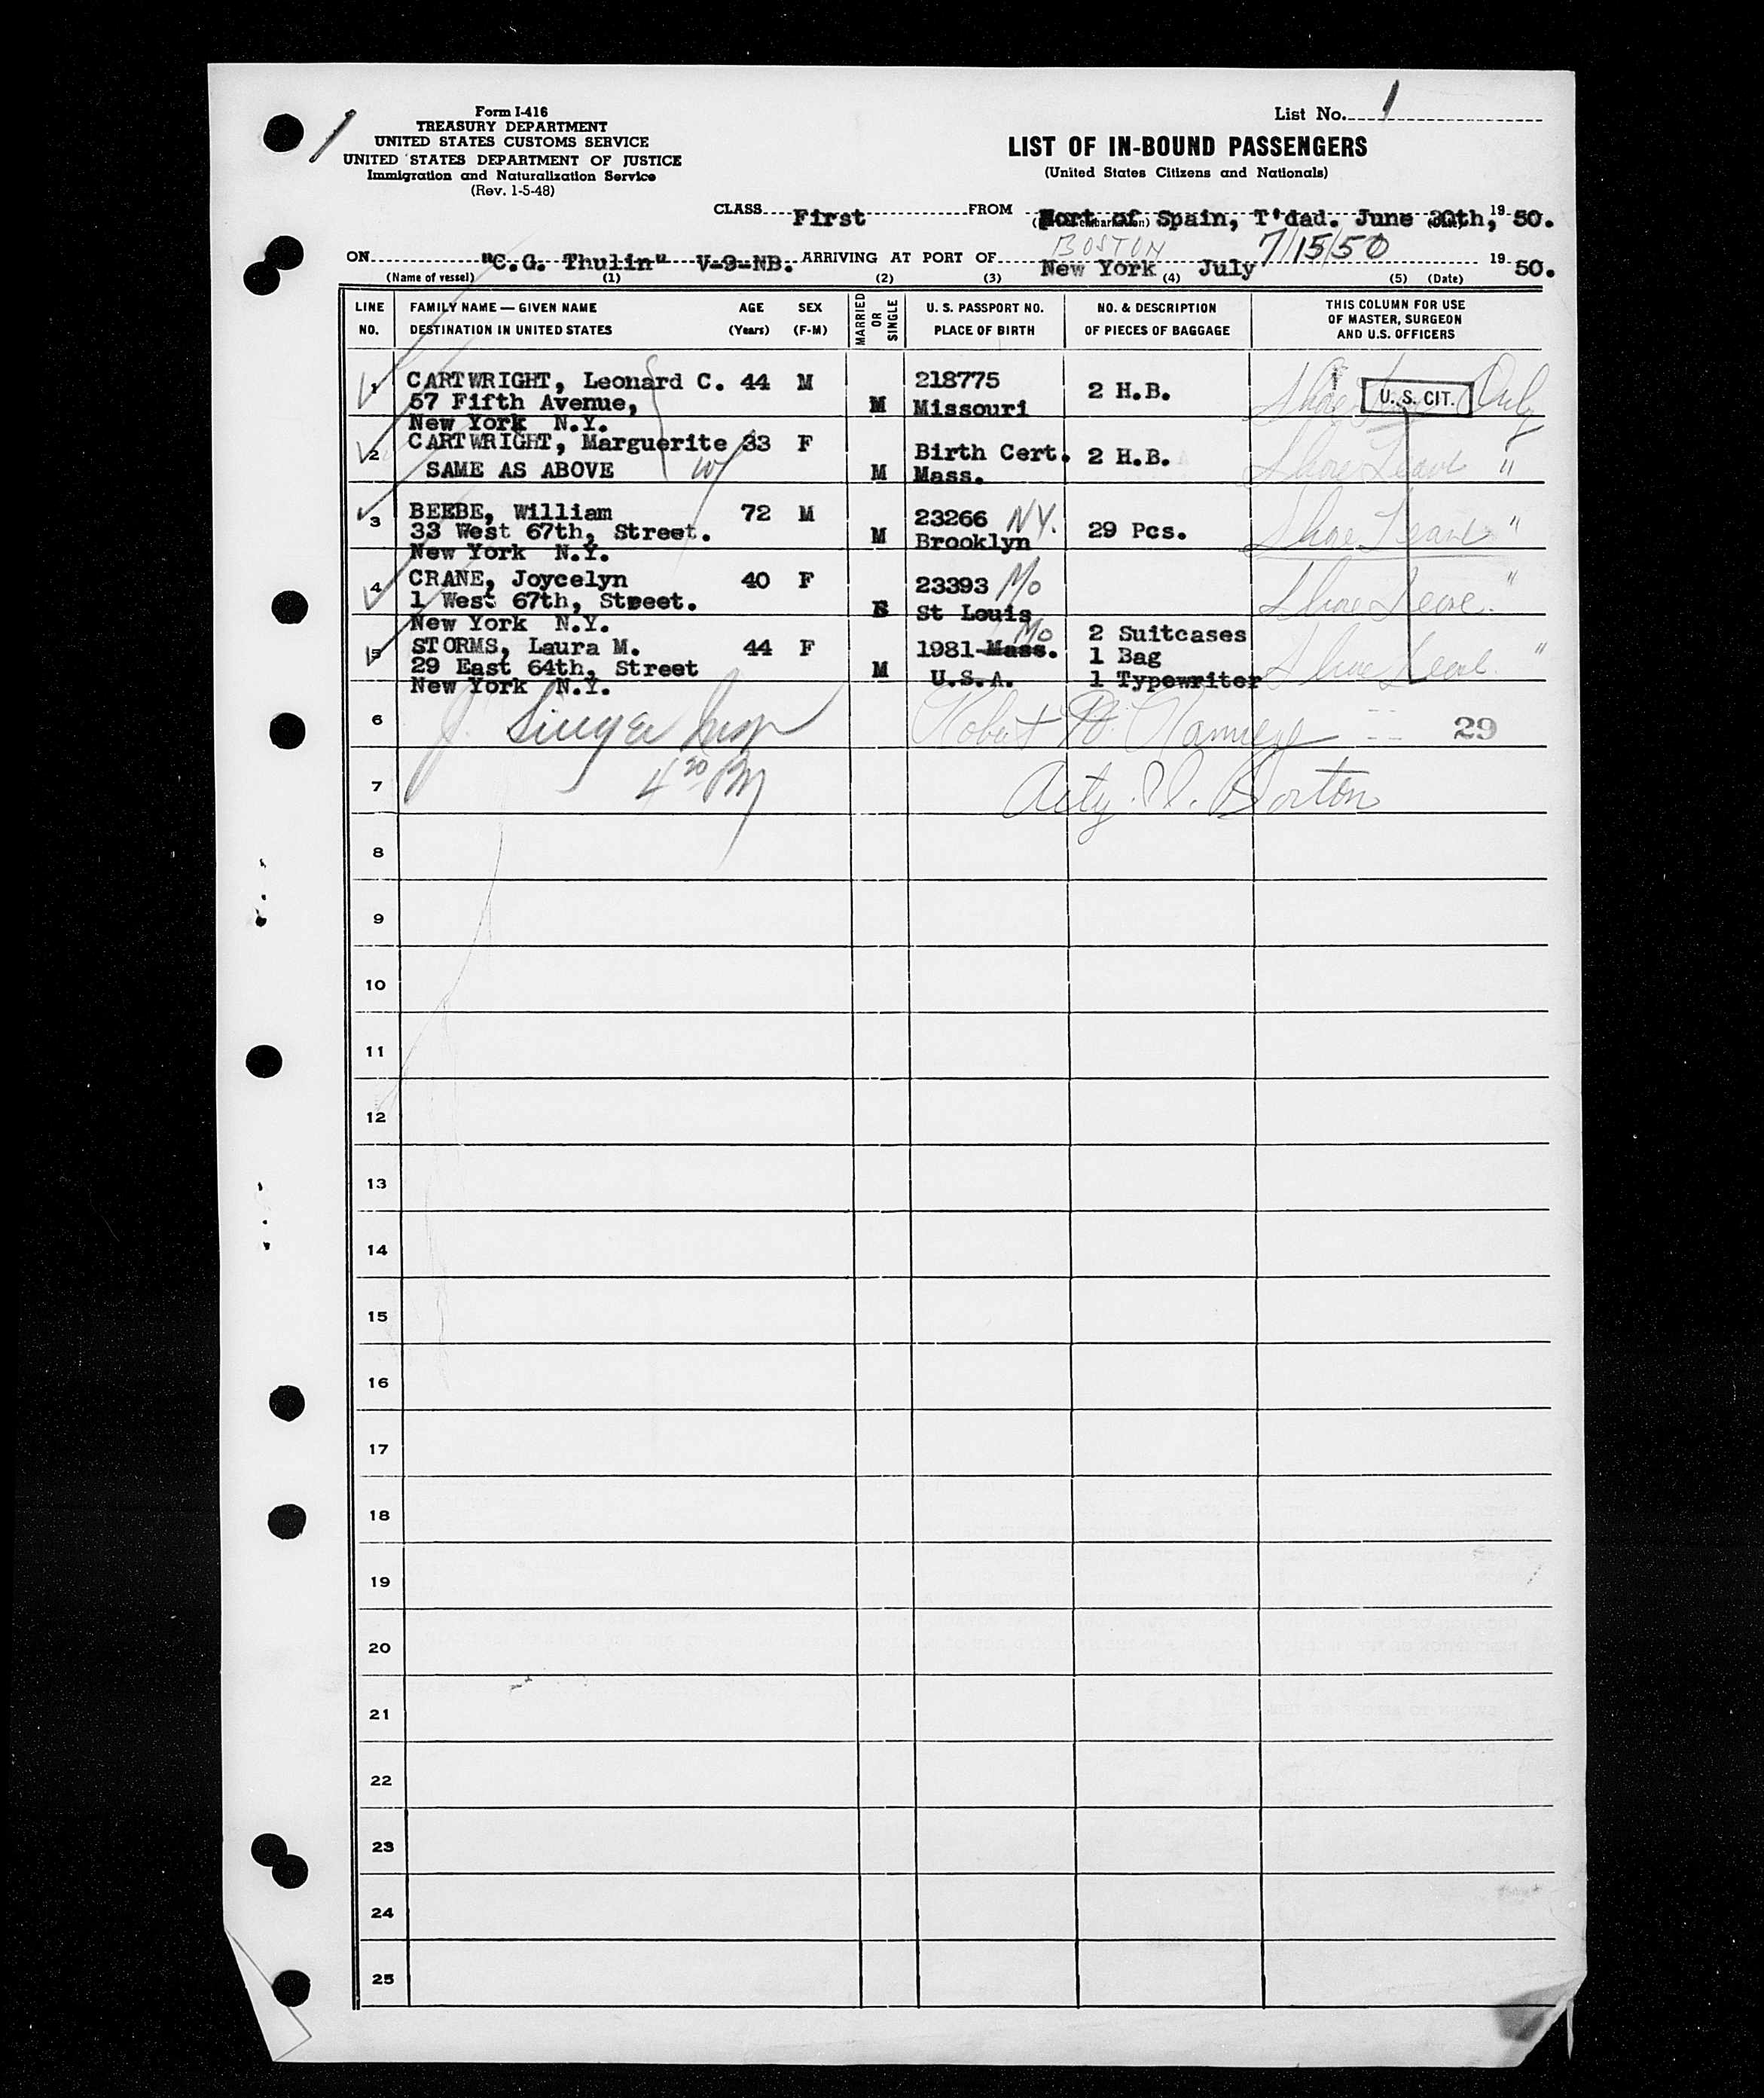 Form I-416
TREASURY DEPARTMENT
UNITED STATES CUSTOMS SERVICE
UNITED STATES DEPARTMENT OF JUSTICE
Immigration and Naturalization Service
(Rev. 1-5-48)
List No. 1
LIST OF IN-BOUND PASSENGERS
(United States Citizens and Nationals)
CLASS First FROM Port of Spain, T'dad. June 30th, 19 50.
BOSTON 7/15/50
ON "C.G. Thulin" V-9-NB. ARRIVING AT PORT OF New York July 19 50.
(Name of vessel) (1) (2) (3) (4) (5) (Date)
LINE NO. FAMILY NAME — GIVEN NAME DESTINATION IN UNITED STATES AGE (Years) SEX (F-M) MARRIED OR SINGLE U. S. PASSPORT NO. PLACE OF BIRTH NO. & DESCRIPTION OF PIECES OF BAGGAGE THIS COLUMN FOR USE OF MASTER, SURGEON AND U.S. OFFICERS
1 CARTWRIGHT, Leonard C. 44 M 218775 2 H.B. Shore Leave Only U. S. CIT.
57 Fifth Avenue, M Missouri
New York N.Y.
2 CARTWRIGHT, Marguerite 33 F Birth Cert. 2 H.B. Shore Leave "
SAME AS ABOVE W M Mass.
3 BEEBE, William 72 M 23266 NY. 29 Pcs. Shore Leave "
33 West 67th, Street. M Brooklyn
New York N.Y.
4 CRANE, Joycelyn 40 F 23393 Mo Shore Leave. "
1 West 67th, Street. S St Louis
New York N.Y.
5 STORMS, Laura M. 44 F 1981 Mass. Mo 2 Suitcases Shore Leave. "
29 East 64th, Street M U.S.A. 1 Bag
New York N.Y. 1 Typewriter
6 J. Singer Insp 29
4 20 PM
7
8
9
10
11
12
13
14
15
16
17
18
19
20
21
22
23
24
25